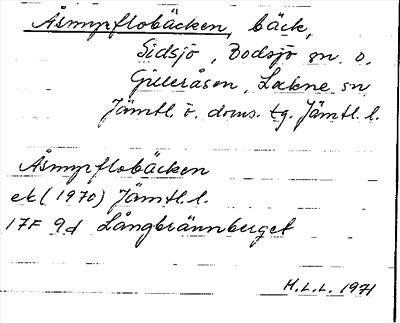 Åsmyrflobäcken, bäck,
Sidsjö, Bodsjö sn o.
Gilleråsen, Lockne sn
Jämtl. ö. doms. tg. Jämtl. l.
Åsmyrflobäcken
ek (1970) Jämtl. l.
17F 9d Långbrännberget
H.L.L. 1971